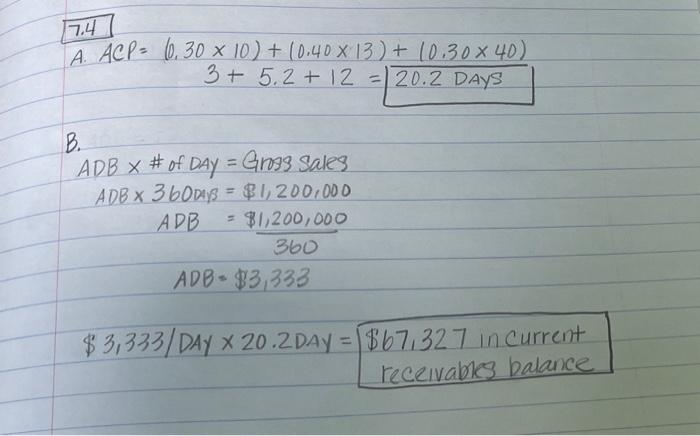 7.4
A. ACP = (0.30 x 10) + (0.40 x 13) + (0.30 x 40)
3 + 5.2 + 12 = 20.2 DAYS
B.
ADB x # of DAY = Gross Sales
ADB x 360 DAYS = $1,200,000
ADB = $1,200,000
360
ADB = $3,333
$3,333/DAY x 20.2 DAY = $67,327 in current
receivables balance